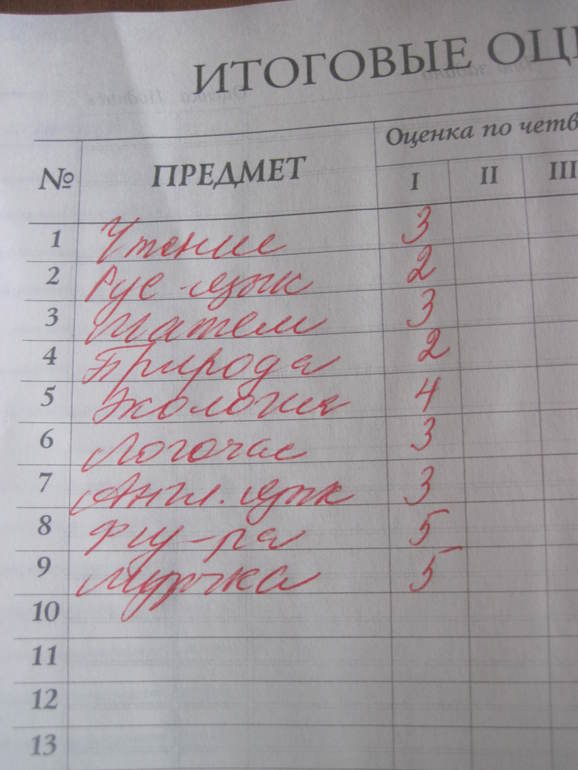 ИТОГОВЫЕ ОЦ
№ ПРЕДМЕТ Оценка по четв
I II III
1 Чтение 3
2 Рус. язык 2
3 Матем 3
4 Природа 2
5 Экология 4
6 Логочас 3
7 Англ. язык 3
8 Физ-ра 5
9 Музыка 5
10
11
12
13